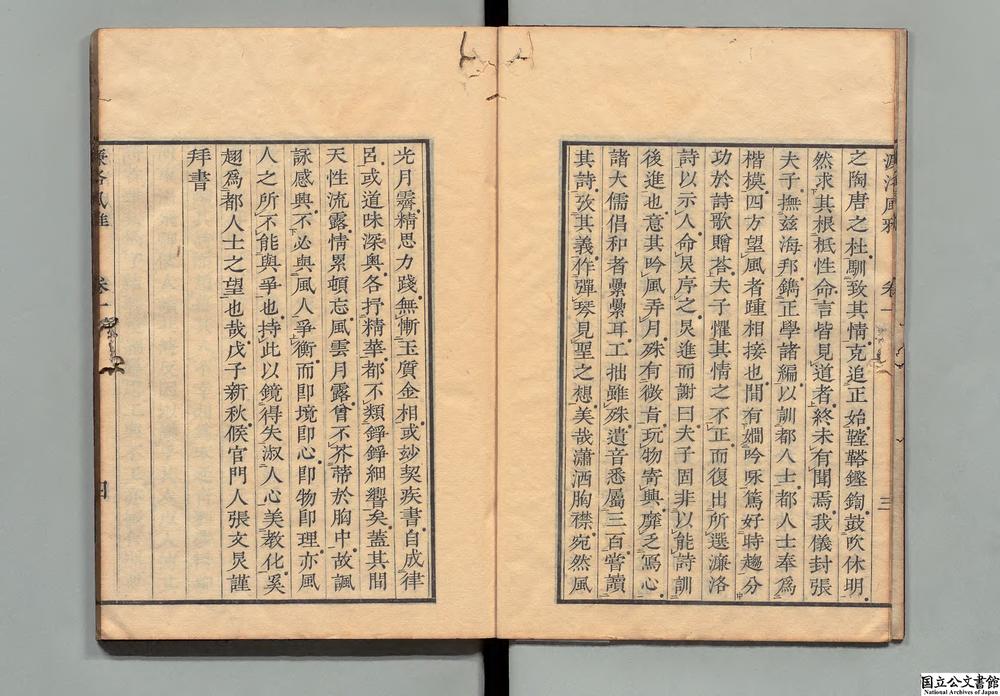 濂洛風雅 卷一 三
之陶唐之杜馴致其情克追正始鞺鞳鏗鍧鼓吹休明
然求其根柢性命言皆見道者終未有聞焉我儀封張
夫子撫茲海邦鐫正學諸編以訓都人士都人士奉爲
楷模四方望風者踵相接也間有嫺吟咏篤好時趨分
功於詩歌贈荅夫子懼其情之不正而復出所選濂洛
詩以示人命炅序之炅進而謝曰夫子固非以能詩訓
後進也意其吟風弄月殊有微旨玩物寄興靡乏寫心
諸大儒倡和者纍纍耳工拙雖殊遺音悉屬三百嘗讀
其詩攷其義作彈琴見聖之想美哉瀟洒胸襟宛然風
光月霽精思力踐無慚玉質金相或妙契疾書自成律
呂或道味深奧各抒精華都不類錚錚細響矣蓋其間
天性流露情累頓忘風雲月露曾不芥蔕於胸中故諷
詠感興不必與風人爭衡而卽境卽心卽物卽理亦風
人之所不能與爭也持此以鏡得失淑人心美教化奚
翅爲都人士之望也哉戊子新秋候官門人張文炅謹
拜書
濂洛風雅 卷一 四
国立公文書館
National Archives of Japan